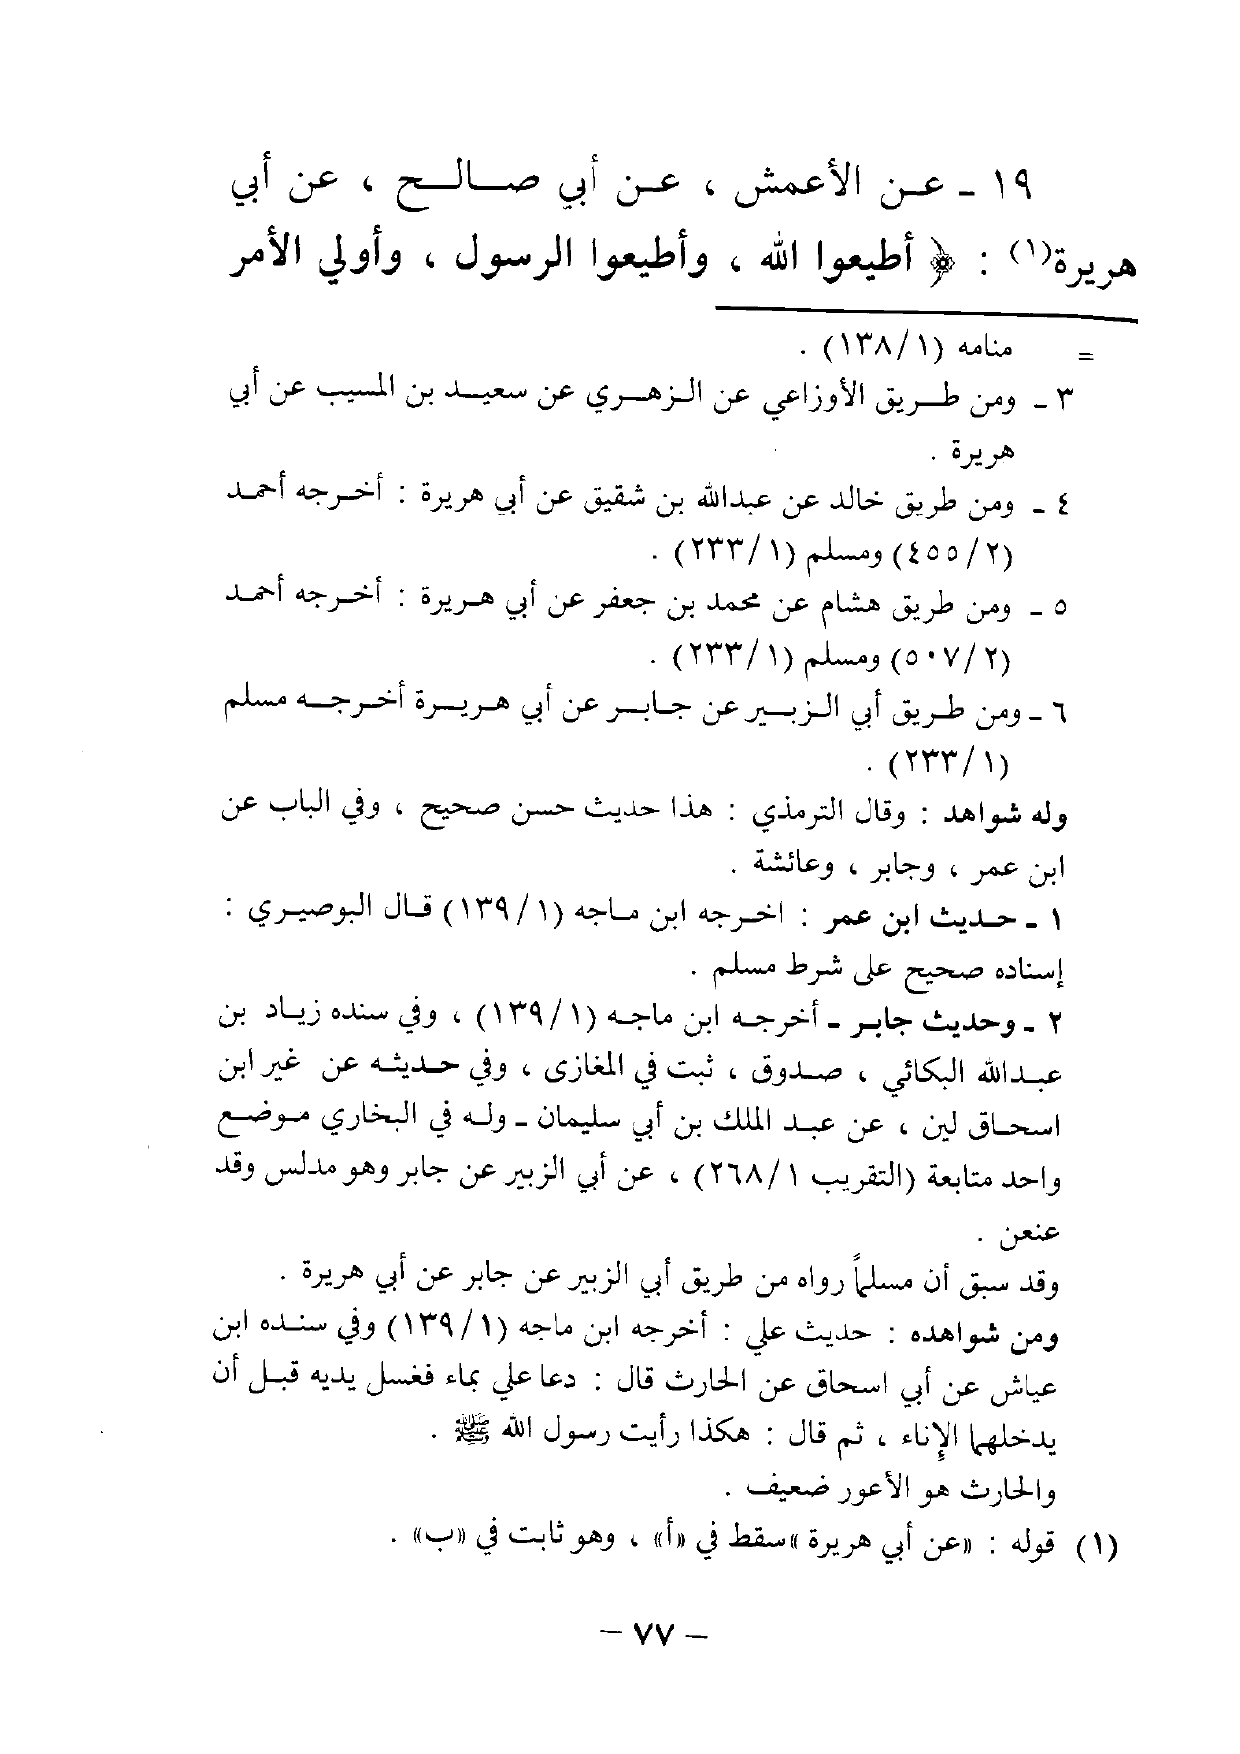 ١٩ ـ عن الأعمش ، عن أبي صالح ، عن أبي
هريرة(١) : ﴿ أطيعوا الله ، وأطيعوا الرسول ، وأولي الأمر
= منامه (١٣٨/١) .
٣ ـ ومن طريق الأوزاعي عن الزهري عن سعيد بن المسيب عن أبي
هريرة .
٤ ـ ومن طريق خالد عن عبدالله بن شقيق عن أبي هريرة : أخرجه أحمد
(٤٥٥/٢) ومسلم (٢٣٣/١) .
٥ ـ ومن طريق هشام عن محمد بن جعفر عن أبي هريرة : أخرجه أحمد
(٥٠٧/٢) ومسلم (٢٣٣/١) .
٦ ـ ومن طريق أبي الزبير عن جابر عن أبي هريرة أخرجه مسلم
(٢٣٣/١) .
وله شواهد : وقال الترمذي : هذا حديث حسن صحيح ، وفي الباب عن
ابن عمر ، وجابر ، وعائشة .
١ ـ حديث ابن عمر : اخرجه ابن ماجه (١٣٩/١) قال البوصيري :
إسناده صحيح على شرط مسلم .
٢ ـ وحديث جابر ـ أخرجه ابن ماجه (١٣٩/١) ، وفي سنده زياد بن
عبدالله البكائي ، صدوق ، ثبت في المغازى ، وفي حديثه عن غير ابن
اسحاق لين ، عن عبد الملك بن أبي سليمان ـ وله في البخاري موضع
واحد متابعة (التقريب ٢٦٨/١) ، عن أبي الزبير عن جابر وهو مدلس وقد
عنعن .
وقد سبق أن مسلماً رواه من طريق أبي الزبير عن جابر عن أبي هريرة .
ومن شواهده : حديث علي : أخرجه ابن ماجه (١٣٩/١) وفي سنده ابن
عياش عن أبي اسحاق عن الحارث قال : دعا علي بماء فغسل يديه قبل أن
يدخلهما الإناء ، ثم قال : هكذا رأيت رسول الله ﷺ .
والحارث هو الأعور ضعيف .
(١) قوله : «عن أبي هريرة» سقط في «أ» ، وهو ثابت في «ب» .
ـ ٧٧ ـ